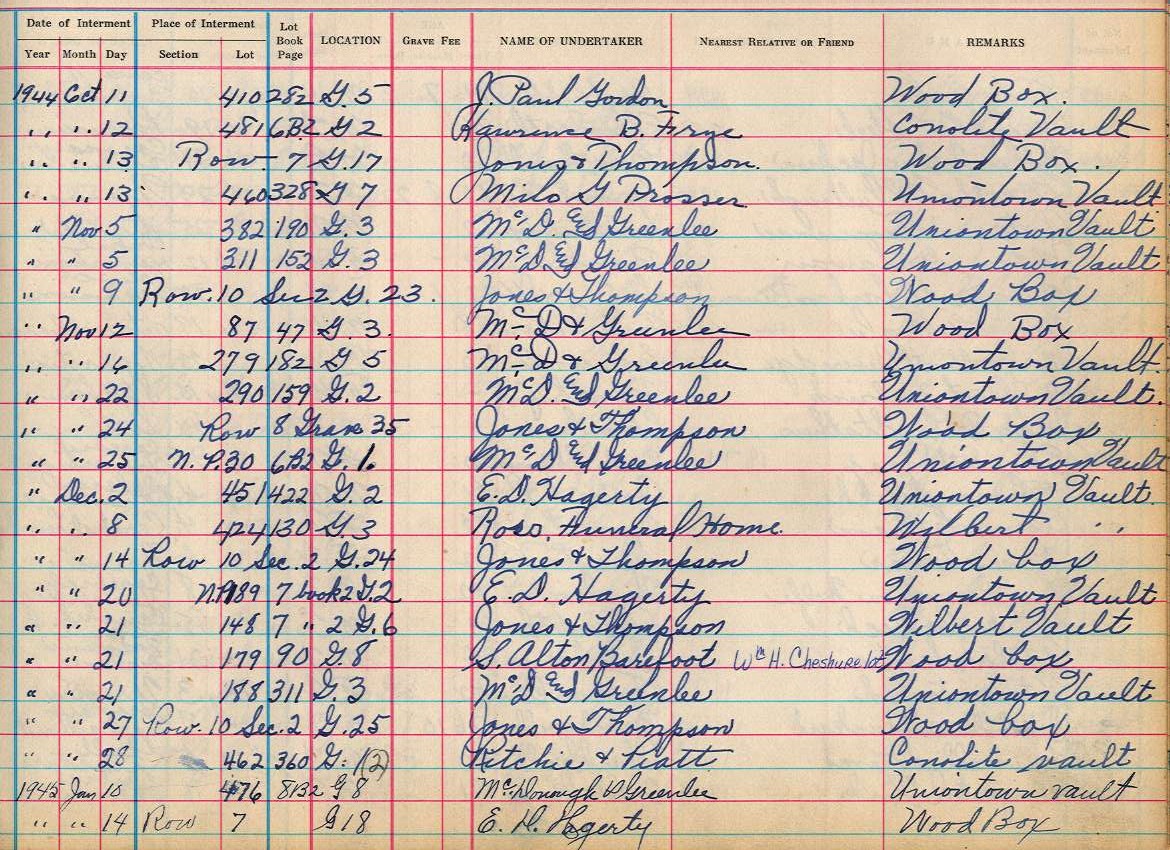 Date of Interment Place of Interment Lot Book Page LOCATION GRAVE FEE NAME OF UNDERTAKER NEAREST RELATIVE OR FRIEND REMARKS
Year Month Day Section Lot
1944 Oct 11 410 282 G. 5 J. Paul Gordon Wood Box.
" " 12 481 6B2 G 2 Lawrence B. Frye Conolite Vault
" " 13 Row 7 G.17 Jones & Thompson. Wood Box.
" " 13 460 328 G 7 Milo G Prosser Uniontown Vault
" Nov 5 382 190 G. 3 McD. and Greenlee Uniontown Vault
" " 5 311 152 G. 3 McD and Greenlee Uniontown Vault
" " 9 Row. 10 Sec 2 G. 23. Jones & Thompson Wood Box
" Nov 12 87 47 G 3. Mc D & Greenlee Wood Box
" " 279 182 G 5 Mc D & Greenlee Uniontown Vault.
" " 22 290 159 G. 2 McD. and Greenlee Uniontown Vault.
" " 24 Row 8 Grave 35 Jones & Thompson Wood Box
" " 25 N.P. 30 6B2 G. 1. McD and Greenlee Uniontown Vault
" Dec. 2 451 422 G. 2 E.D. Hagerty Uniontown Vault.
" " 8 424 130 G. 3 Ross. Funeral Home. Wilbert "
" " 14 Row 10 Sec. 2 G.24 Jones & Thompson Wood box
" " 20 189 7 book 2 G.2 E. D. Hagerty Uniontown Vault
" " 21 148 7 " 2 G.6 Jones & Thompson Wilbert Vault
" " 21 179 90 G. 8 S. Alton Barefoot Wm H. Cheshire lot Wood box
" " 21 188 311 G. 3 McD and Greenlee Uniontown Vault
" " 27 Row. 10 Sec. 2 G.25 Jones & Thompson Wood box
" " 28 462 360 G. 1(2) Ritchie & Piatt Conolite vault
1945 Jan 10 476 G 8 McDonough & Greenlee Uniontown vault
" " 14 Row 7 G 18 E. D. Hagerty Wood Box